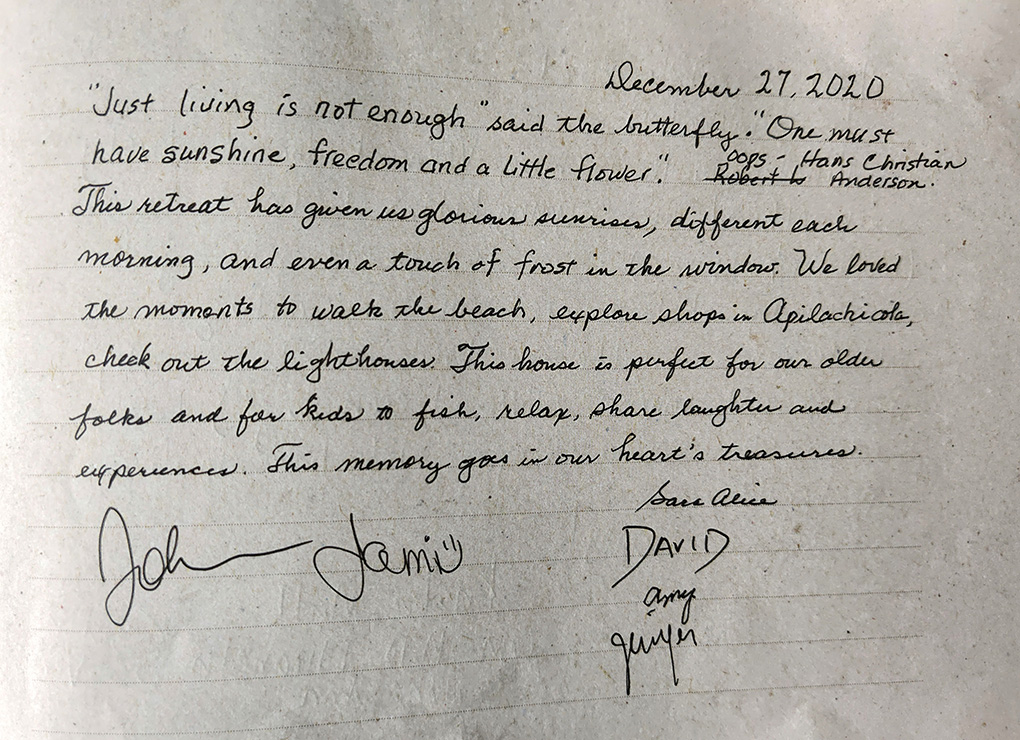 December 27, 2020
"Just living is not enough" said the butterfly. "One must
have sunshine, freedom and a little flower." oops - Hans Christian
Robert Anderson.
This retreat has given us glorious sunrises, different each
morning, and even a touch of frost in the window. We loved
the moments to walk the beach, explore shops in Apilachicola,
check out the lighthouses. This house is perfect for our older
folks and for kids to fish, relax, share laughter and
experiences. This memory goes in our heart's treasures.
Sara Alice
John Jami
DAVID
amy